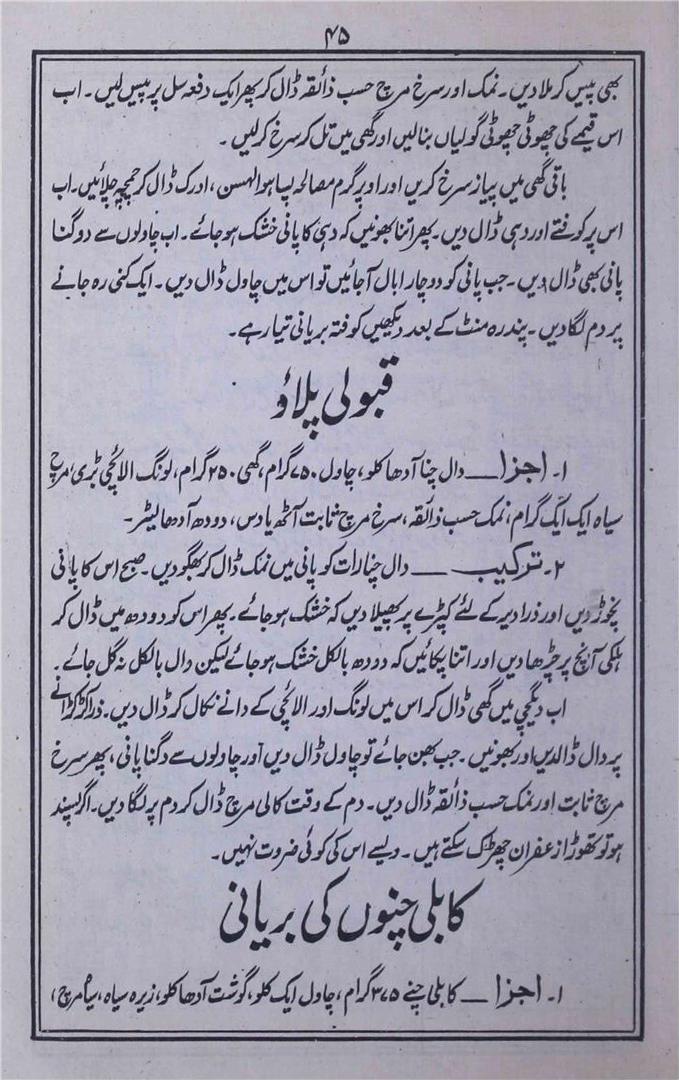 ۴۵
بھی پیس کر ملا دیں۔ نمک اور سرخ مرچ حسب ذائقہ ڈال کر پھر ایک دفعہ سل پر پیس لیں۔ اب
اس قیمے کی چھوٹی چھوٹی گولیاں بنا لیں اور گھی میں تل کر سرخ کر لیں۔
باقی گھی میں پیاز سرخ کریں اور اوپر گرم مصالحہ پسا ہوا لہسن، ادرک ڈال کر چمچہ چلائیں۔ اب
اس پر کوفتے اور دہی ڈال دیں۔ پھر اتنا بھونیں کہ دہی کا پانی خشک ہو جائے۔ اب چاولوں سے دوگنا
پانی بھی ڈال دیں۔ جب پانی کو دو چار ابال آجائیں تو اس میں چاول ڈال دیں۔ ایک کنی رہ جانے
پر دم لگا دیں۔ پندرہ منٹ کے بعد دیکھیں کوفتہ بریانی تیار ہے۔
قبولی پلاؤ
۱۔ اجزا ــــ دال چنا آدھا کلو، چاول ۷۵۰ گرام، گھی ۲۵۰ گرام، لونگ الائچی بڑی، مرچ
سیاہ ایک ایک گرام، نمک حسب ذائقہ، سرخ مرچ ثابت آٹھ یا دس، دودھ آدھا لیٹر۔
۲۔ ترکیب ــــ دال چنا رات کو پانی میں نمک ڈال کر بھگو دیں۔ صبح اس کا پانی
نچوڑ دیں اور ذرا دیر کے لئے کپڑے پر پھیلا دیں کہ خشک ہو جائے۔ پھر اس کو دودھ میں ڈال کر
ہلکی آنچ پر چڑھا دیں اور اتنا پکائیں کہ دودھ بالکل خشک ہو جائے لیکن دال بالکل نہ گل جائے۔
اب دیگچی میں گھی ڈال کر اس میں لونگ اور الائچی کے دانے نکال کر ڈال دیں۔ ذرا کڑکڑانے
پر دال ڈالدیں اور بھونیں۔ جب بھن جائے تو چاول ڈال دیں اور چاولوں سے دگنا پانی، پھر سرخ
مرچ ثابت اور نمک حسب ذائقہ ڈال دیں۔ دم کے وقت کالی مرچ ڈال کر دم پر لگا دیں۔ اگر پسند
ہو تو تھوڑا زعفران چھڑک سکتے ہیں۔ ویسے اس کی کوئی ضروت نہیں۔
کابلی چنوں کی بریانی
۱۔ اجزا ــــ کابلی چنے ۳۷۵ گرام، چاول ایک کلو، گوشت آدھا کلو، زیرہ سیاہ، سیاہ مرچ،